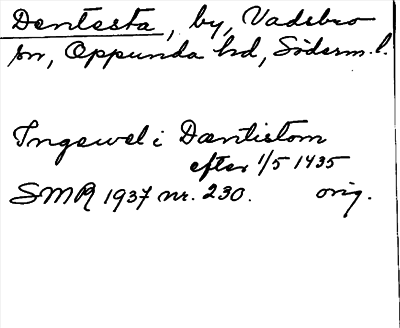 Dentesta, by, Vadsbro
sn, Oppunda hd, Söderm. l.
Ingewel i Dæntistom
efter 1/5 1435
SMR 1937 nr. 230. orig.